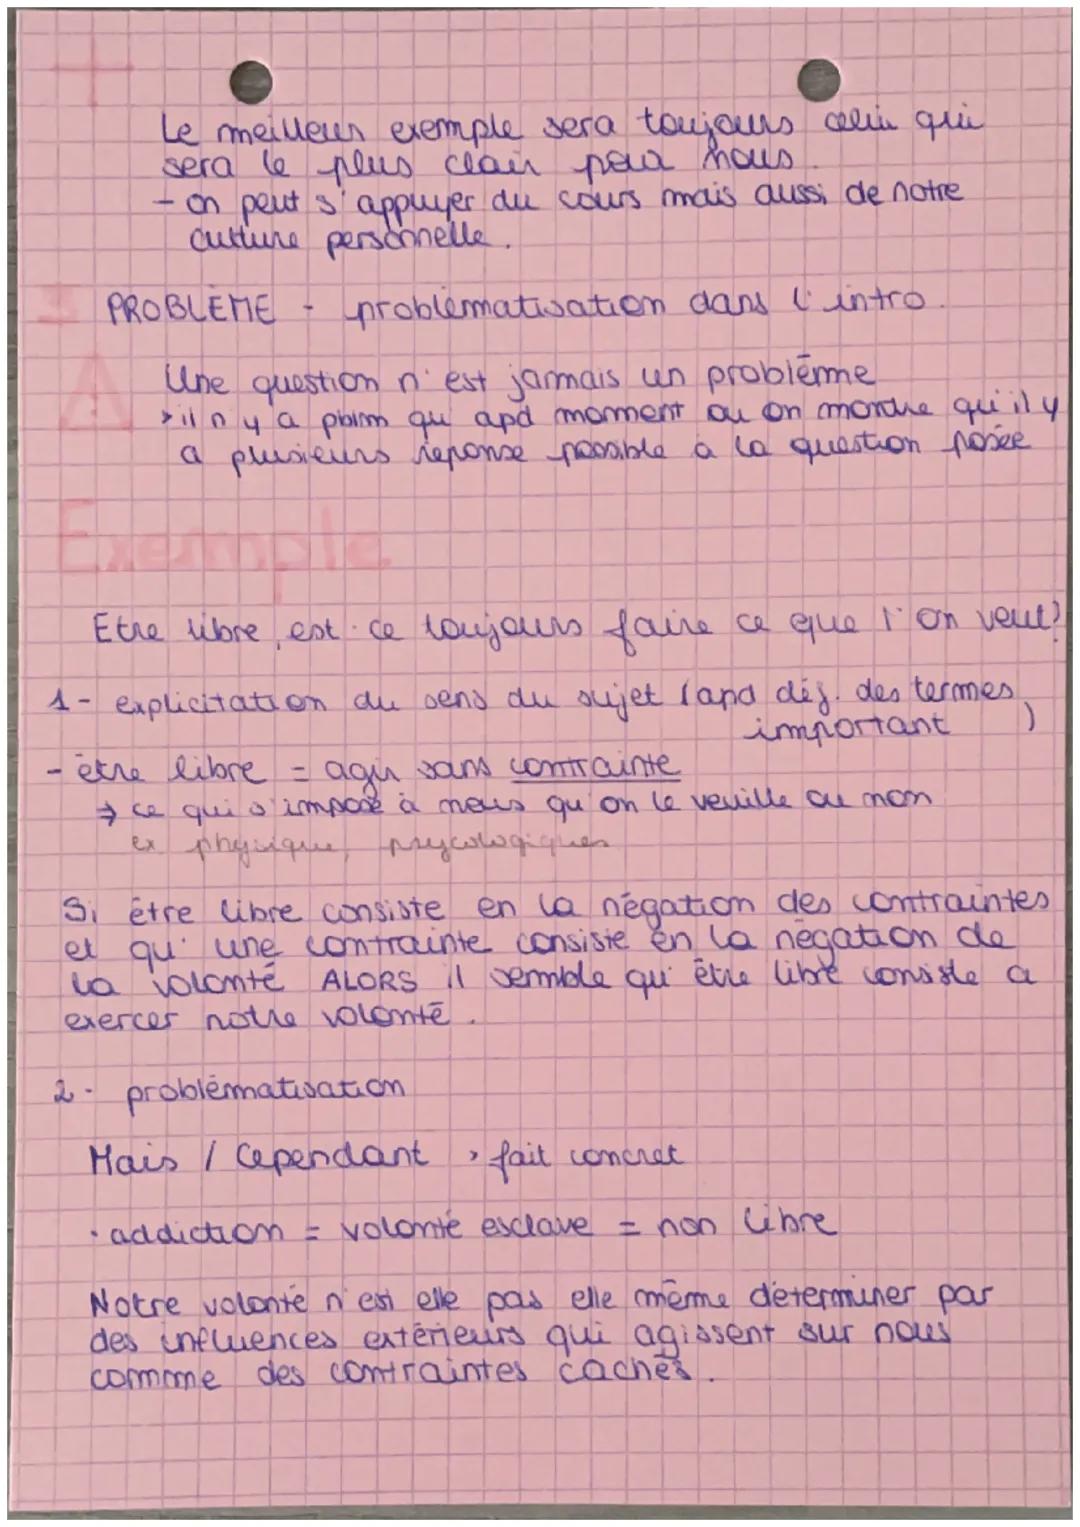 Le meilleur exemple sera toujours celui qui
sera le plus clair pour nous.
- on peut s'appuyer du cours mais aussi de notre
culture personnelle.
PROBLÈME - problèmatisation dans l'intro.
Une question n'est jamais un problème
> il n'y a pblm qu'apd momment ou on montre qu'il y
a plusieurs réponse possible a la question posée
Exemple
Etre libre, est-ce toujours faire ce que l'on veut?
1- explicitation du sens du sujet (apd déf. des termes
important )
- être libre = agir sans contrainte
→ ce qui s'impose à nous qu'on le veuille ou non
ex physique, psycologiques
Si être libre consiste en la négation des contraintes
et qu'une contrainte consiste en la négation de
la volonté ALORS il semble qu'être libre consiste a
exercer notre volonté.
2- problématisation
Mais / Cependant > fait concret
• addiction = volonté esclave = non libre
Notre volonté n'est elle pas elle même déterminer par
des influences extérieurs qui agissent sur nous
comme des contraintes cachés.